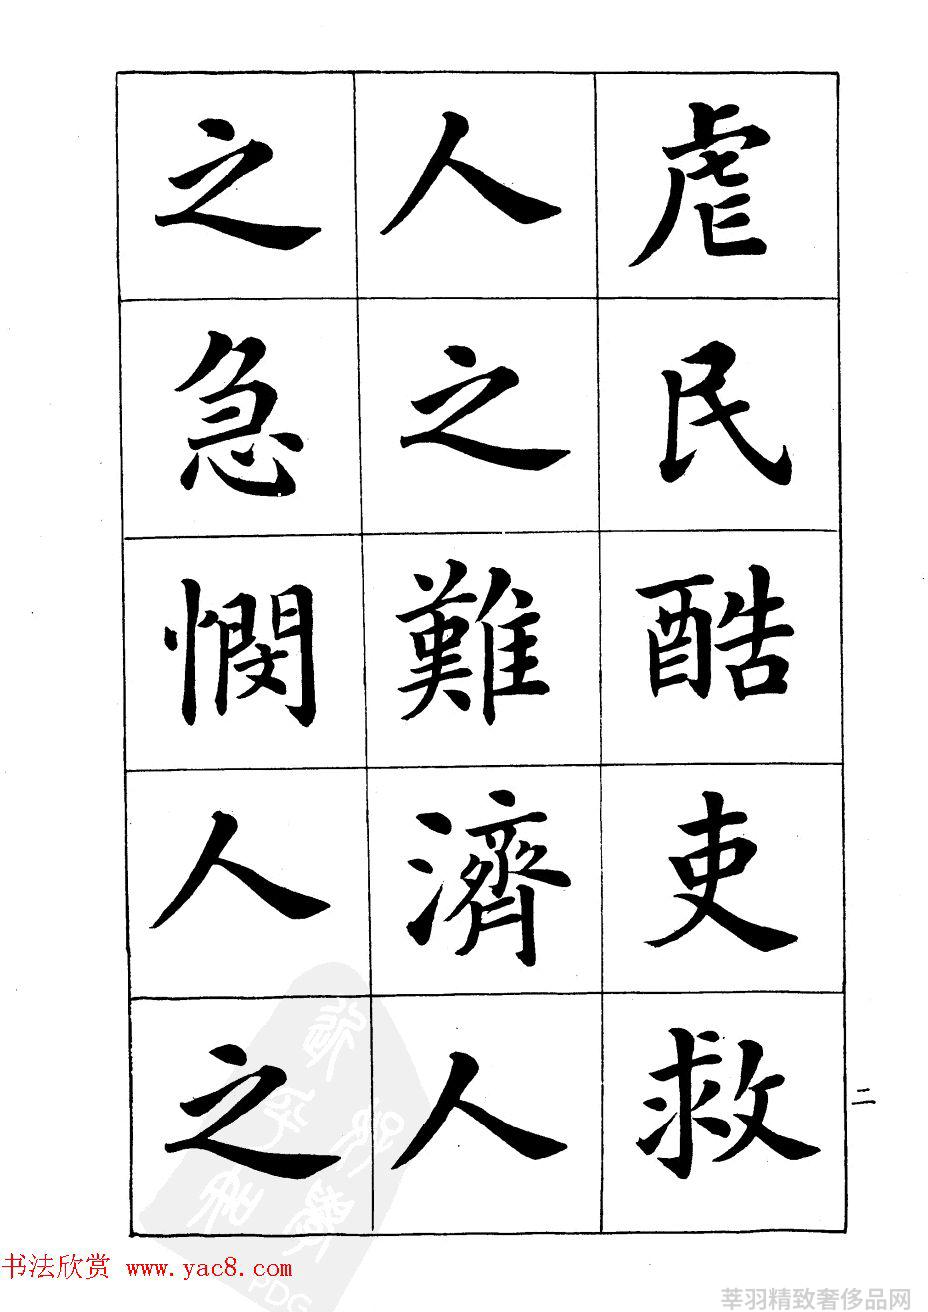 虐民酷吏救
人之難濟人
之急憫人之
二
书法欣赏 www.yac8.com
PDG
莘羽精致奢侈品网